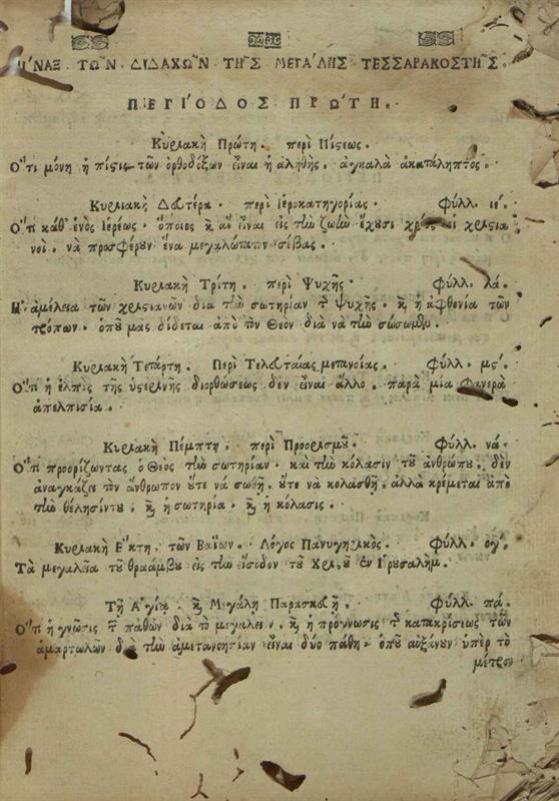 ΠΙΝΑΞ ΤΩΝ ΔΙΔΑΧΩΝ ΤΗΣ ΜΕΓΑΛΗΣ ΤΕΣΣΑΡΑΚΟΣΤΗΣ.
ΠΕΡΙΟΔΟΣ ΠΡΩΤΗ.
Κυριακὴ Πρώτη. περὶ Πίϛεως.
Ὅτι μόνη ἡ πίϛις τῶν ὀρθοδόξων εἶναι ἡ ἀληθής. ἀγκαλὰ ἀκατάληπτος.
Κυριακὴ Δευτέρα. περὶ Ἱεροκατηγορίας. Φύλλ. ιέ.
Ὅτι κάθ' ἑνὸς Ἱερέως. ὅποιος ϗ̀ ἂν εἶναι εἰς τὴν ζωὴν ἔχουσι οἱ χριϛια
νοὶ. νὰ προσφέρουν ἕνα μεγαλώτατον σέβας.
Κυριακὴ Τρίτη. περὶ Ψυχῆς. Φύλλ. λά.
Ἡ ἀμέλεια τῶν χριϛιανῶν διὰ τὴν σωτηρίαν τῆς ψυχῆς. ϗ̀ ἡ ἀφθονία τῶν
τρόπων. ὁποῦ μας δίδεται ἀπὸ τὸν Θεὸν διὰ νὰ τὴν σώσωμεν.
Κυριακὴ Τετάρτη. Περὶ Τελευταίας μετανοίας. Φύλλ. μϛ'.
Ὅτι ἡ ἐλπὶς τῆς ὑϛερινῆς διορθώσεως δὲν εἶναι ἄλλο. παρὰ μία φανερὰ
ἀπελπισία.
Κυριακὴ Πέμπτη. περὶ Προορισμοῦ. Φύλλ. νά.
Ὅτι προορίζωντας ὁ Θεὸς τὴν σωτηρίαν. καὶ τὴν κόλασιν τοῦ ἀνθρώπου. δὲν
ἀναγκάζει τὸν ἄνθρωπον οὔτε νὰ σωθῇ. οὔτε νὰ κολασθῇ. ἀλλὰ κρέμεται ἀπὸ
τὴν θέλησίντου. ϗ̀ ἡ σωτηρία. ϗ̀ ἡ κόλασις.
Κυριακὴ Ἕκτη. τῶν Βαΐων. Λόγος Πανυγηρικός. Φύλλ. ογ'.
Τὰ μεγαλεῖα τοῦ θριάμβου εἰς τὴν εἴσοδον τοῦ ἐν Ἱερουσαλήμ.
Τῇ Ἁγίᾳ. ϗ̀ Μεγάλῃ Παρασκευῇ. Φύλλ. πά.
Ὅτι ἡ γνῶσις τῶν παθῶν διὰ τὸ μεγαλεῖον. ϗ̀ ἡ πρόγνωσις τῆς κατακρίσεως τῶν
ἁμαρτωλῶν διὰ τὴν ἀμετανοησίαν εἶναι δύο πάθη. ὁποῦ αὐξάνουν ὑπὲρ τὸ
μέτρον